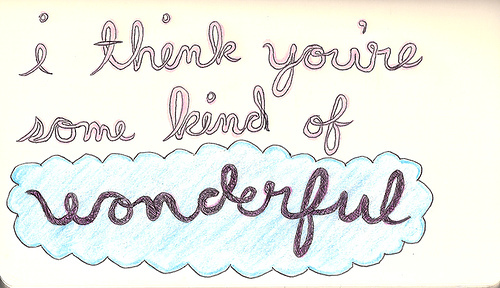 i think you're
some kind of
wonderful